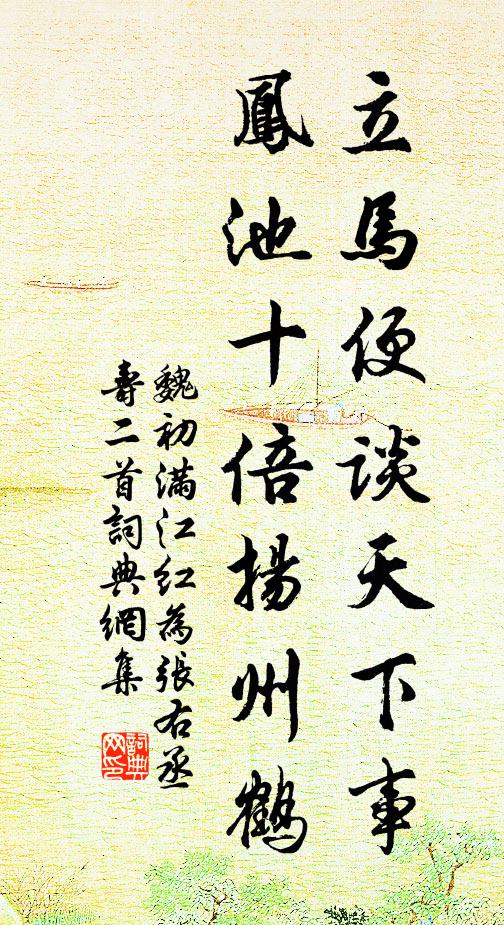 立馬便談天下事
鳳池十倍揚州鶴
魏初滿江紅為張右丞
壽二首詞典網集
詞典
网印